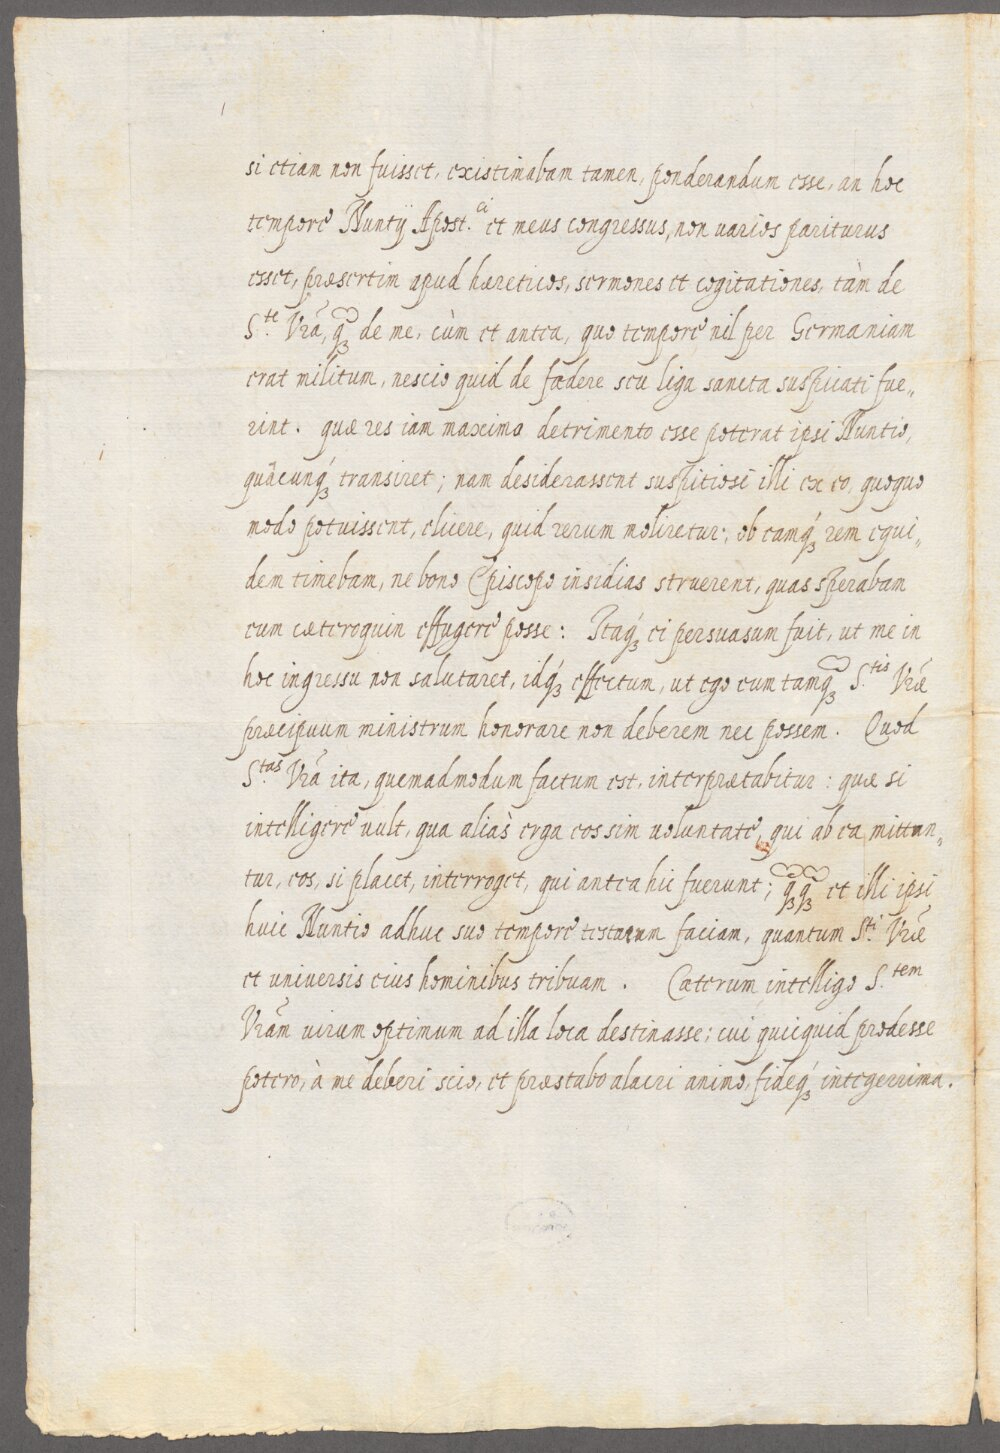 si etiam non fuisset, existimabam tamen, ponderandum esse, an hoc
tempore Nuntÿ Apost.ci et meus congressus, non varios pariturus
esset, præsertim apud hæreticos, sermones et cogitationes, tàm de
S.te Vrã, q̃ȝ de me, cùm et antea, quo tempore nil per Germaniam
erat militum, nescio quid de fœdere seu liga sancta suspicati fue„
rint. quæ res iam maximo detrimento esse poterat ipsi Nuntio,
quâcunqȝ́ transiret; nam desiderassent suspitiosi illi ex eo, quoquo
modo potuissent, elicere, quid rerum moliretur; ob eamqȝ́ rem equi„
dem timebam, ne bono Episcopo insidias struerent, quas sperabam
eum cæteroquin effugere posse: Itaqȝ́ ei persuasum fuit, ut me in
hoc ingressu non salutaret, idqȝ́ effectum, ut ego eum tamq̃ȝ S.tis Vræ̃
præcipuum ministrum honorare non deberem nec possem. Quod
S.tas Vrã ita, quemadmodum factum est, interprætabitur: quæ si
intelligere vult, qua aliàs erga eos sim voluntate, qui ab ea mittan„
tur, eos, si placet, interroget, qui antea hic fuerunt; q̃ȝq̃ȝ et illi ipsi
huic Nuntio adhuc suo tempore testatum faciam, quantum S.ti Vræ̃
et universis eius hominibus tribuam. Cæterum intelligo S.tem
Vrãm virum optimum ad illa loca destinasse; cui quicquid prodesse
potero, à me deberi scio, et præstabo alacri animo, fideqȝ́ integerrima.